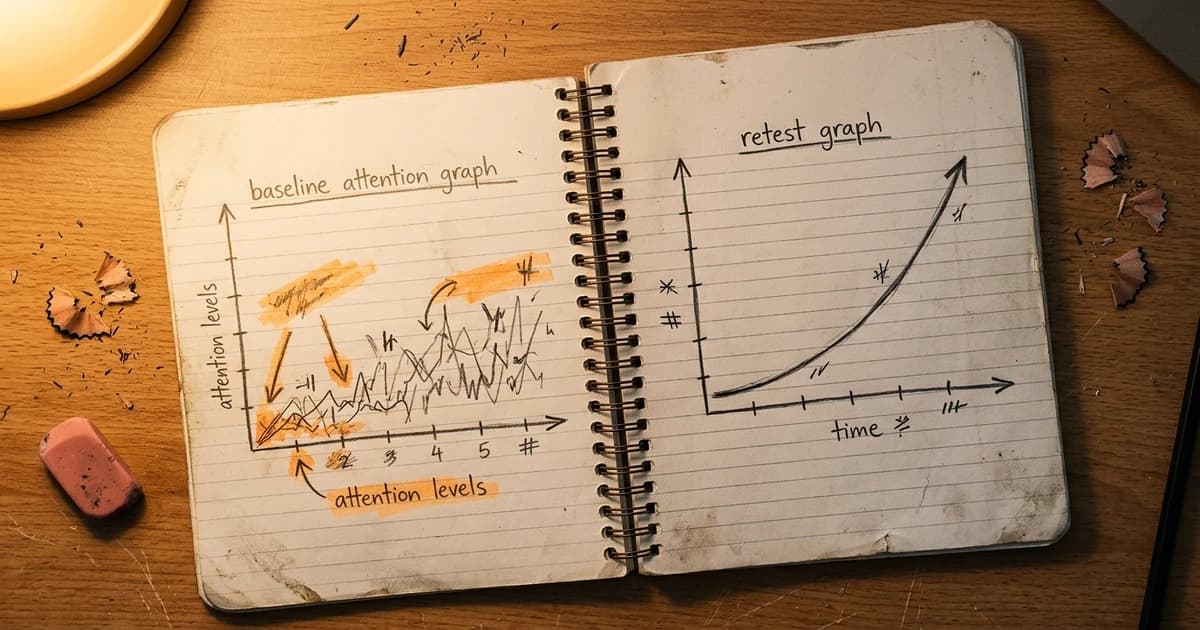 baseline attention graph
attention levels
3 4 5 #
attention levels
retest graph
# *
time